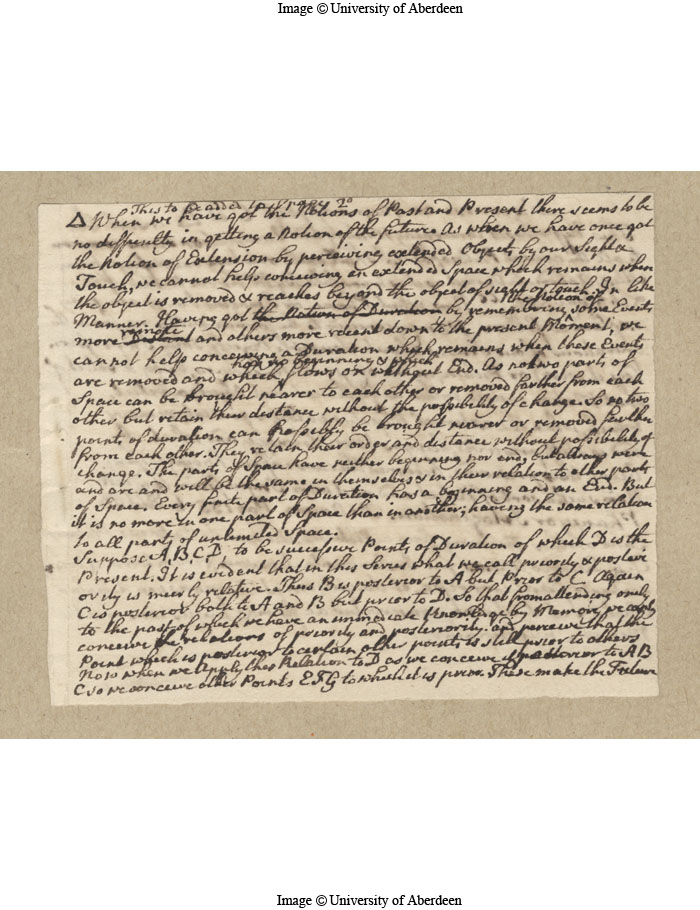 Image © University of Aberdeen
This to be added to 2º
Δ When we have got the Notions of Past and Present there seems to be
no difficulty in getting a Notion of the future As when we have once got
the Notion of Extension by perceiving extended Objects by our Sight &
Touch, we cannot help conceiving an extended Space which remains when
the object is removed & reaches beyond the object of sight or touch. In like
the Notion of
Manner. Having got the Notion of Duration by remembering some Events
remote
more Distant and others more recent down to the present Moment, we
cannot help conceiving a Duration which remains when these Events
has no beginning & which
are removed and which flows on without End. As no two parts of
Space can be brought nearer to each other or removed farther from each
other but retain their distance without the possibility of change. So no two
points of duration can possibly be brought nearer or removed further
from each other. They retain their order and distance without possibility of
change. The parts of Space have neither beginning nor end, but always were
and are and will be the same in themselves & in their relation to other parts
of Space. Every finite part of Duration has a beginning and an End. But
it is no more in one part of Space than in another, having the same relation
to all parts of unlimited Space.
Suppose A, B, C, D, to be successive Points of Duration of which D is the
Present. It is evident that in this Series what we call priority & posteri
ority is meerly relative. Thus B is posterior to A but Prior to C. Again
C is posterior both to A and B but prior to D. So that from attending only
to the past of which we have an immediate Knowledge by Memory, we easily
conceive the relations of priority and posteriority. and perceive that the
Point which is posterior to certain other points is still prior to others
Now when we apply this Relation to D as we conceive it posterior to A B
C so we conceive other Points E F G to which it is prior. These make the Future
Image © University of Aberdeen